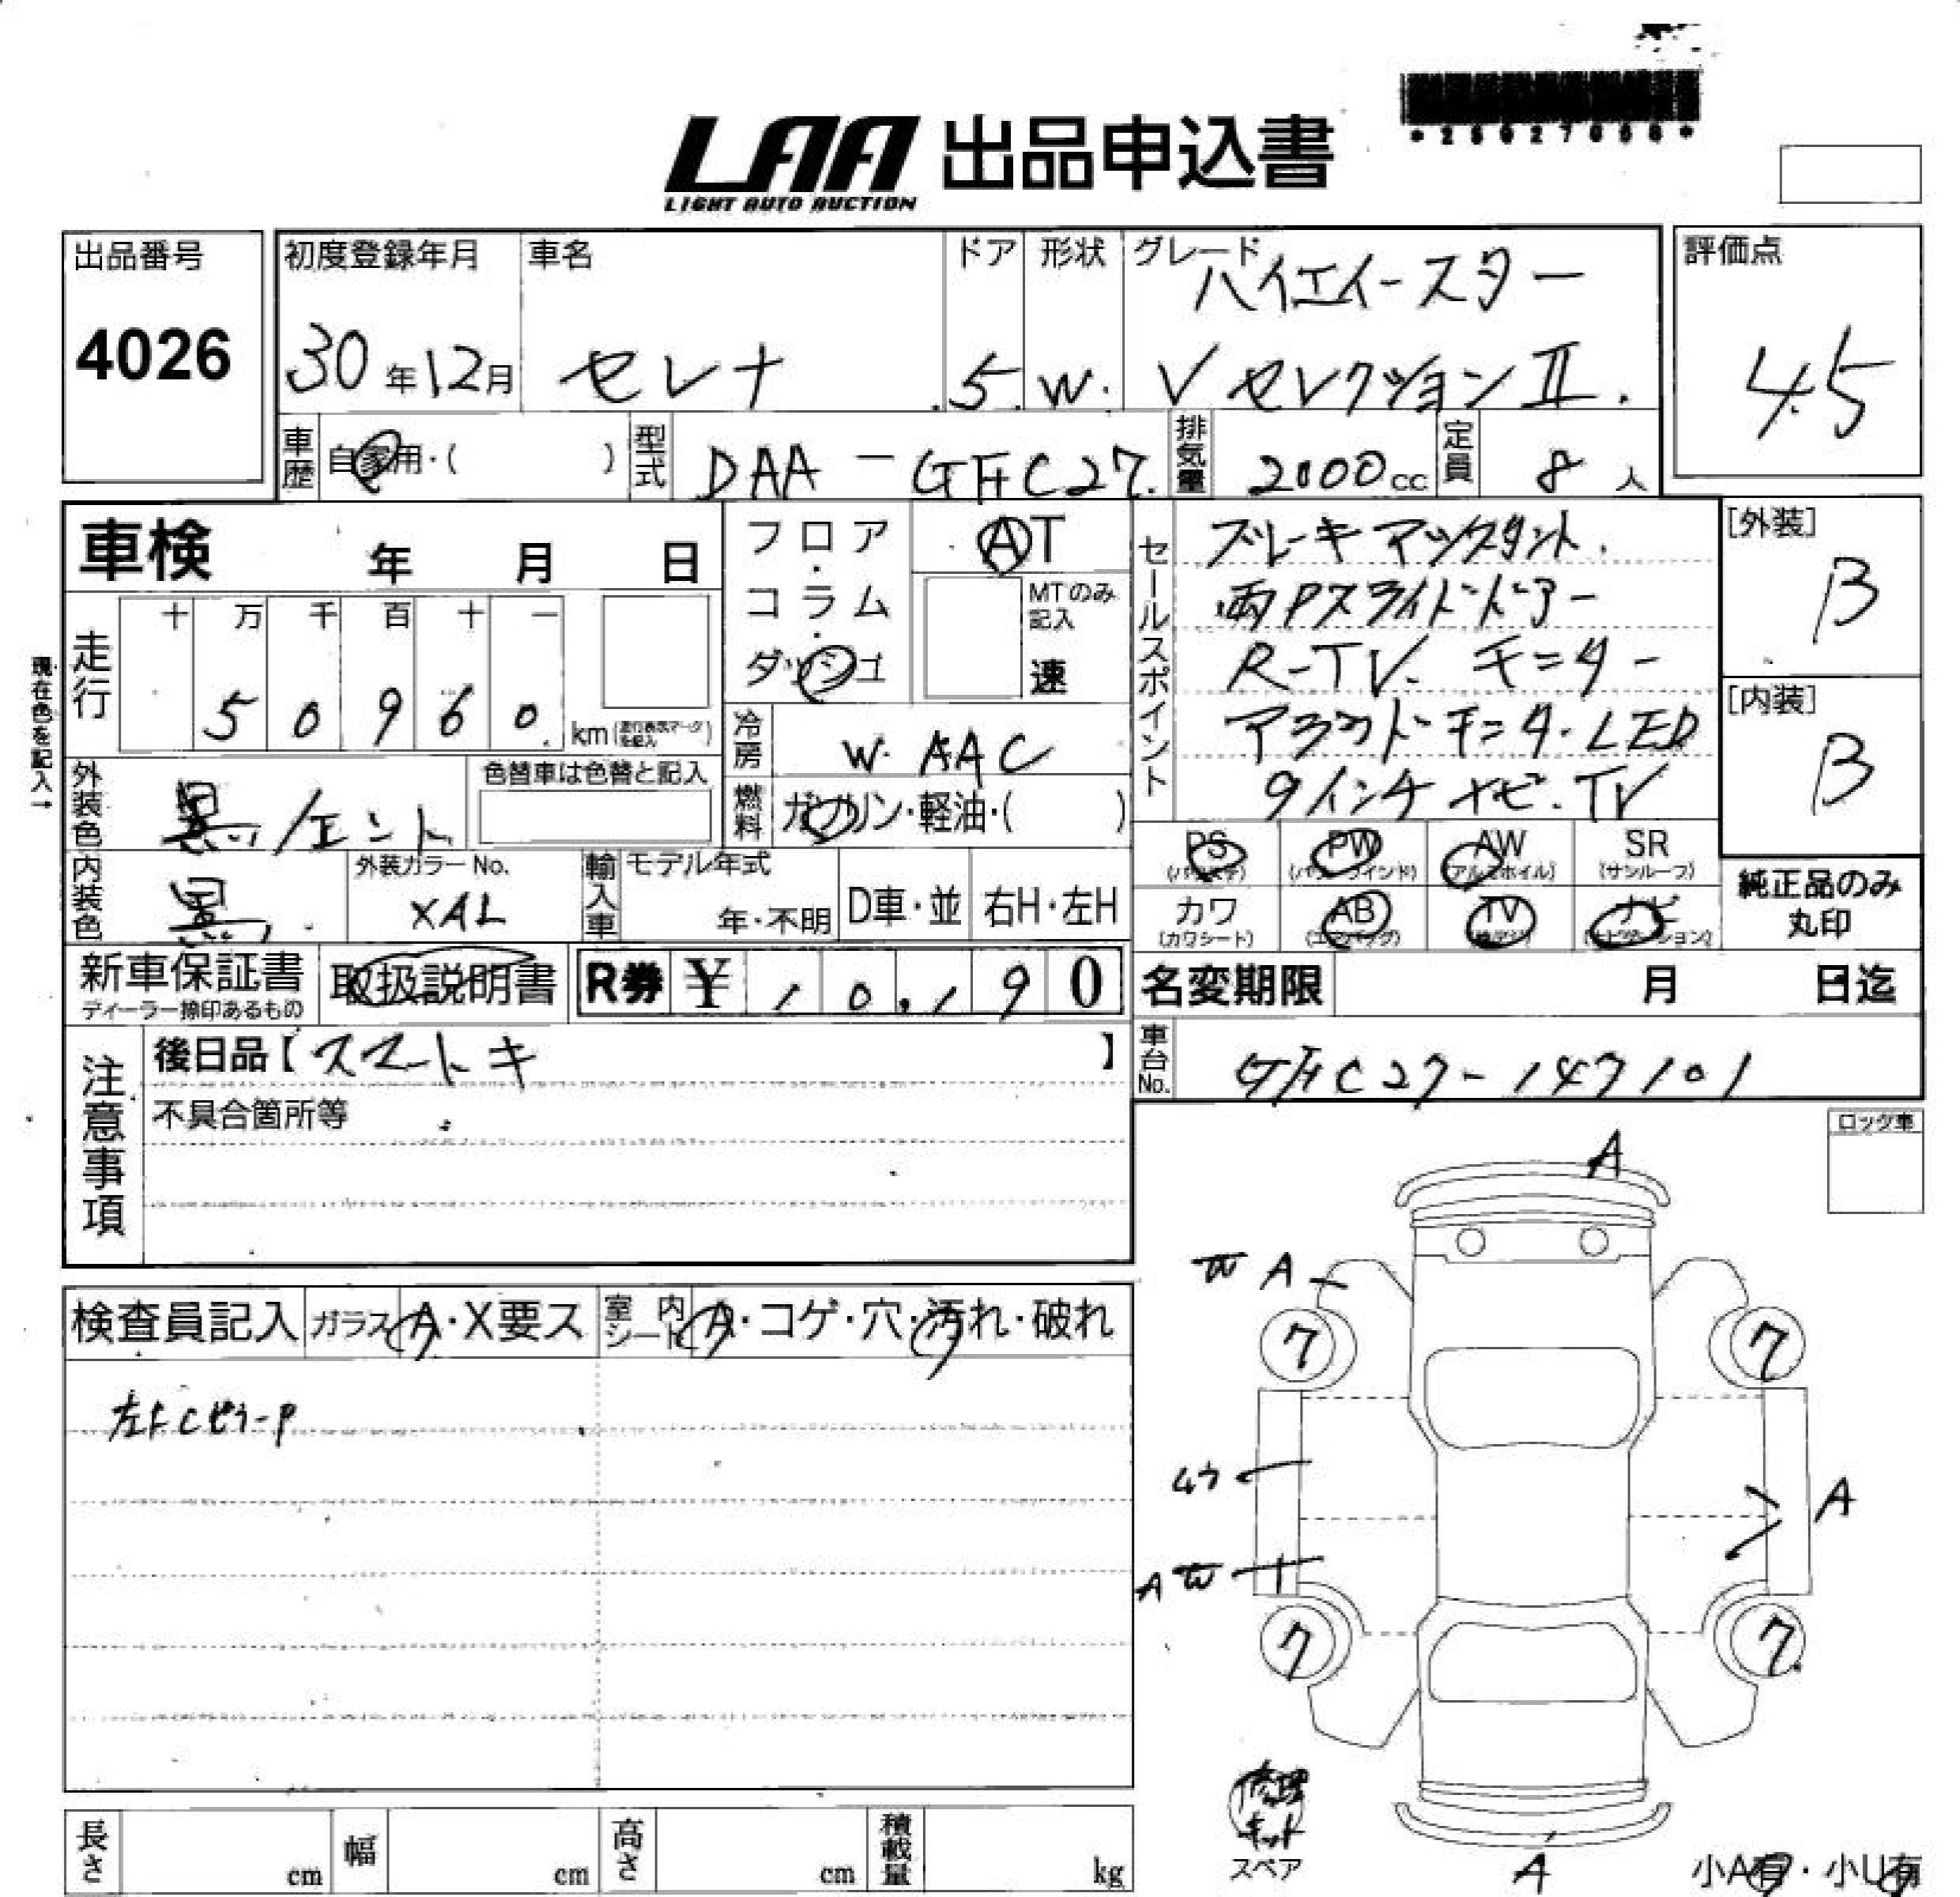 LAA 出品申込書
LIGHT AUTO AUCTION
出品番号
4026
初度登録年月
30年12月
車名
セレナ
ドア
5
形状
W
グレード
ハイウェイスター
V セレクション II
評価点
4.5
車歴 自家用・( )
型式 DAA-GFC27
排気量 2000cc
定員 8人
車検 年 月 日
走行 十 万 千 百 十 一
5 0 9 6 0 km
現在色を記入→
フロア・コラム・ダッシュ
AT
MTのみ記入
速
冷房 W.AAC
燃料 ガソリン・軽油・( )
外装色 黒/
色替車は色替と記入
内装色 黒
外装カラーNo.
XAL
輸入車 モデル年式
年・不明 D車・並 右H・左H
セールスポイント
ブレーキアシスタント
両Pスライドドアー
R-TV. モニター
アラウンドモニター.LED
9インチナビ.TV
PS (パワステ) PW (パワーウインド) AW (アルミホイル) SR (サンルーフ)
カワ (カワシート) AB (エアバッグ) TV (テレビ) ナビ (ナビゲーション)
[外装]
B
[内装]
B
純正品のみ
丸印
新車保証書
ディーラー捺印あるもの
取扱説明書
R券 ¥ 10,190
名変期限 月 日迄
車台No. GFC27-147101
注意事項
後日品【スマートキ 】
不具合箇所等
ロック車
検査員記入 ガラス A・X要ス 室内シート A・コゲ・穴・汚れ・破れ
A
W A
7
7
A
A W
7
7
修理
キット
スペア
A
小A有・小U有
長さ cm 幅 cm 高さ cm 積載量 kg